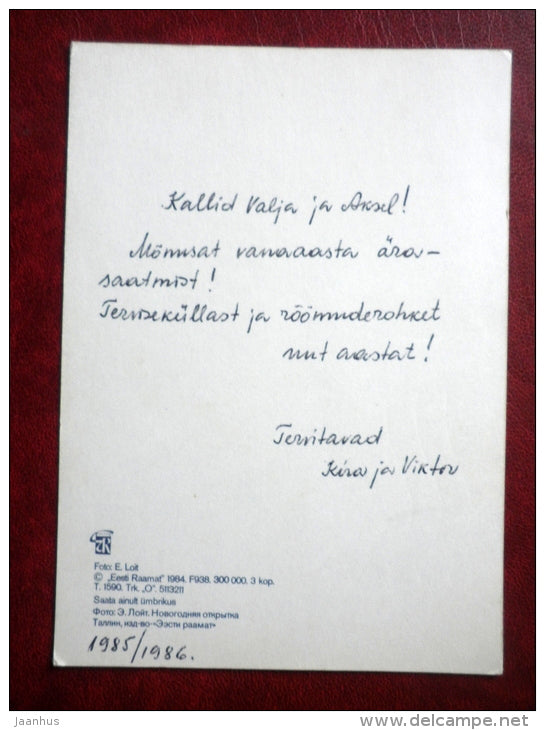 Kallid Valja ja Aksel!
Mõnusat vanaaasta ära-
saatmist!
Terviseküllast ja rõõmuderohket
uut aastat!
Tervitavad
Kira ja Viktor
ER
Foto: E. Loit
© „Eesti Raamat" 1984. F938. 300 000. 3 kop.
T. 1590. Trk. „O". 5113211
Saata ainult ümbrikus
Фото: Э. Лойт. Новогодняя открытка
Таллин, изд-во «Ээсти раамат»
1985/1986.
© jaanhus
http://www.delcampe.net